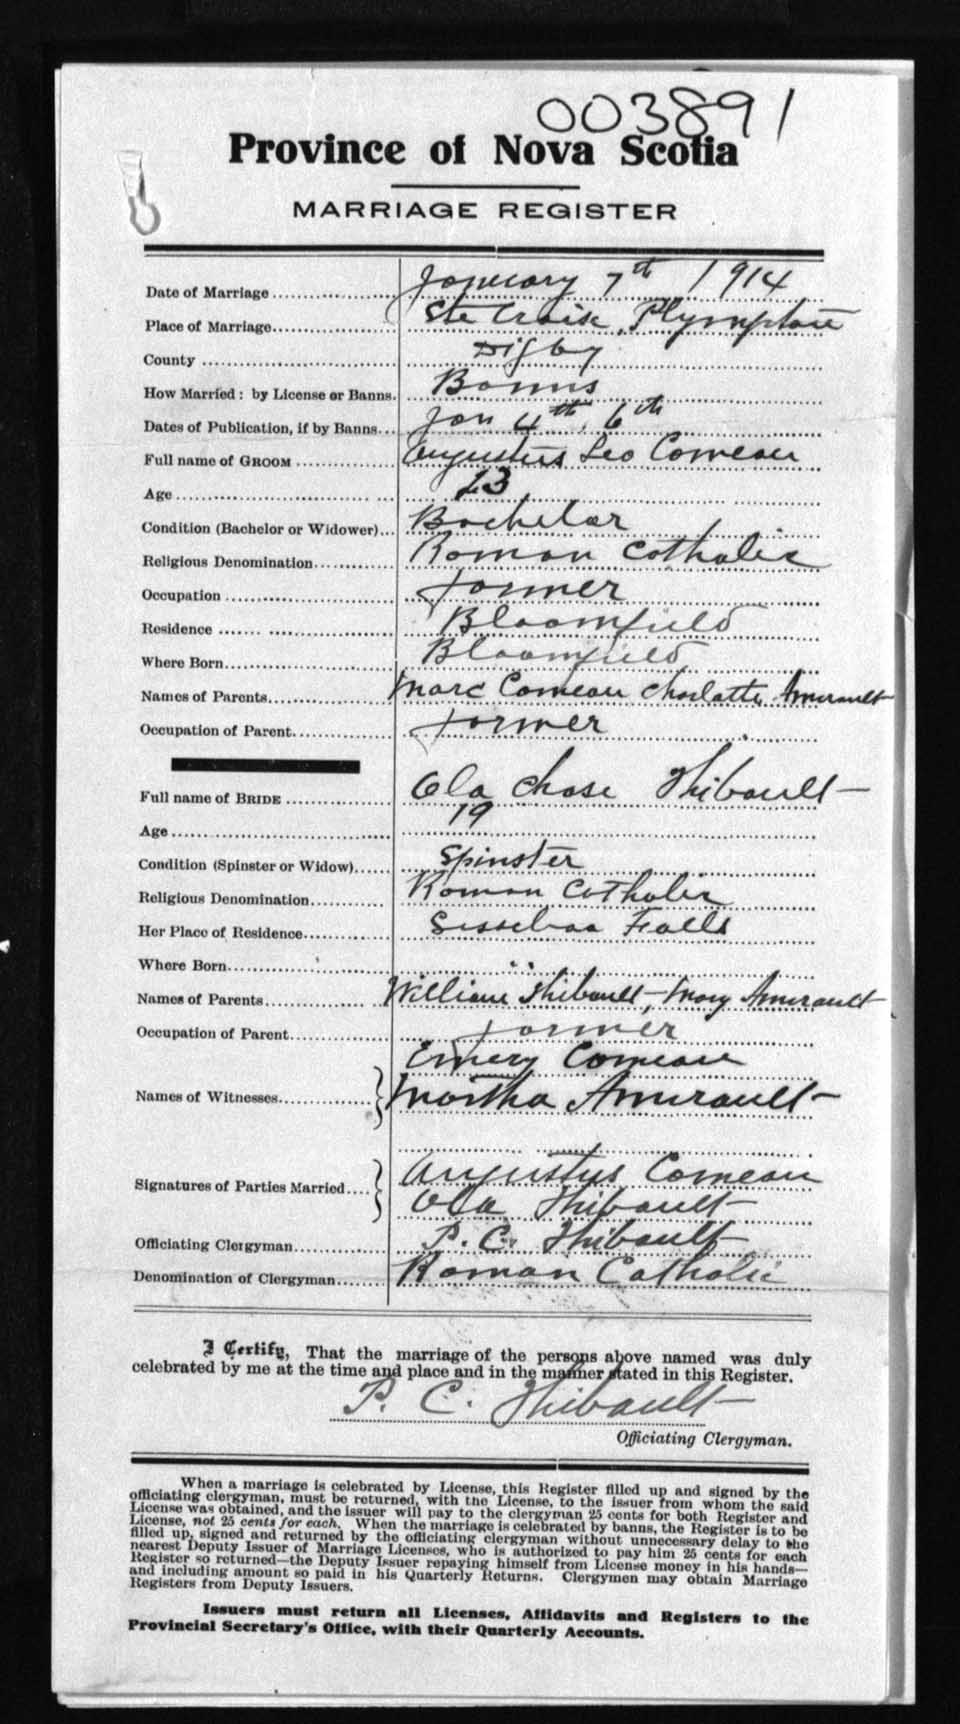 003891
Province of Nova Scotia
MARRIAGE REGISTER
Date of Marriage January 7th 1914
Place of Marriage Ste Croix, Plympton
County Digby
How Married: by License or Banns. Banns
Dates of Publication, if by Banns Jan 4th, 6th
Full name of GROOM Augustus Leo Comeau
Age 23
Condition (Bachelor or Widower) Bachelor
Religious Denomination Roman Catholic
Occupation Farmer
Residence Bloomfield
Where Born Bloomfield
Names of Parents Marc Comeau Charlotte Amirault
Occupation of Parent Farmer
Full name of BRIDE Ola Chase Thibault
Age 19
Condition (Spinster or Widow) Spinster
Religious Denomination Roman Catholic
Her Place of Residence Sissiboo Falls
Where Born " "
Names of Parents William Thibault - Mary Amirault
Occupation of Parent Farmer
Emery Comeau
Names of Witnesses Martha Amirault
Signatures of Parties Married Augustus Comeau
Ola Thibault
Officiating Clergyman P. C. Thibault
Denomination of Clergyman Roman Catholic
I Certify, That the marriage of the persons above named was duly
celebrated by me at the time and place and in the manner stated in this Register.
P. C. Thibault
Officiating Clergyman.
When a marriage is celebrated by License, this Register filled up and signed by the
officiating clergyman, must be returned, with the License, to the issuer from whom the said
License was obtained, and the issuer will pay to the clergyman 25 cents for both Register and
License, not 25 cents for each. When the marriage is celebrated by banns, the Register is to be
filled up, signed and returned by the officiating clergyman without unnecessary delay to the
nearest Deputy Issuer of Marriage Licenses, who is authorized to pay him 25 cents for each
Register so returned—the Deputy Issuer repaying himself from License money in his hands—
and including amount so paid in his Quarterly Returns. Clergymen may obtain Marriage
Registers from Deputy Issuers.
Issuers must return all Licenses, Affidavits and Registers to the
Provincial Secretary's Office, with their Quarterly Accounts.